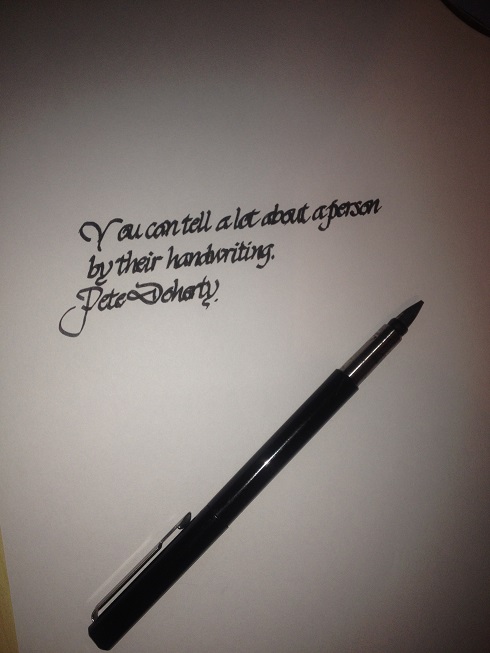 You can tell a lot about a person
by their handwriting.
Pete Doherty.